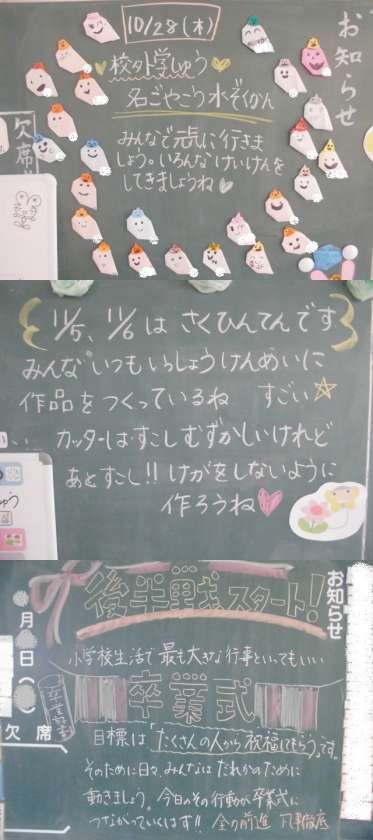 お知らせ
10/28(木)
校外学しゅう
名ごやこう水ぞくかん
みんなで元気に行きま
しょう。いろんなけいけんを
してきましょうね♡
欠席
{11/5、11/6 は さくひんてんです}
みんな いつもいっしょうけんめいに
作品をつくっているね すごい☆
カッターは、すこしむずかしいけれど
あとすこし!! けがをしないように
作ろうね♡
お知らせ
後半戦スタート!
月
日
小学校生活で最も大きな行事といってもいい
卒業式
目標は「たくさんの人から祝福してもらう」です。
そのために日々、みんなはだれかのために
動きましょう。今日のその行動が卒業式に
つながっていくはず!! 全力前進 凡事徹底
欠席